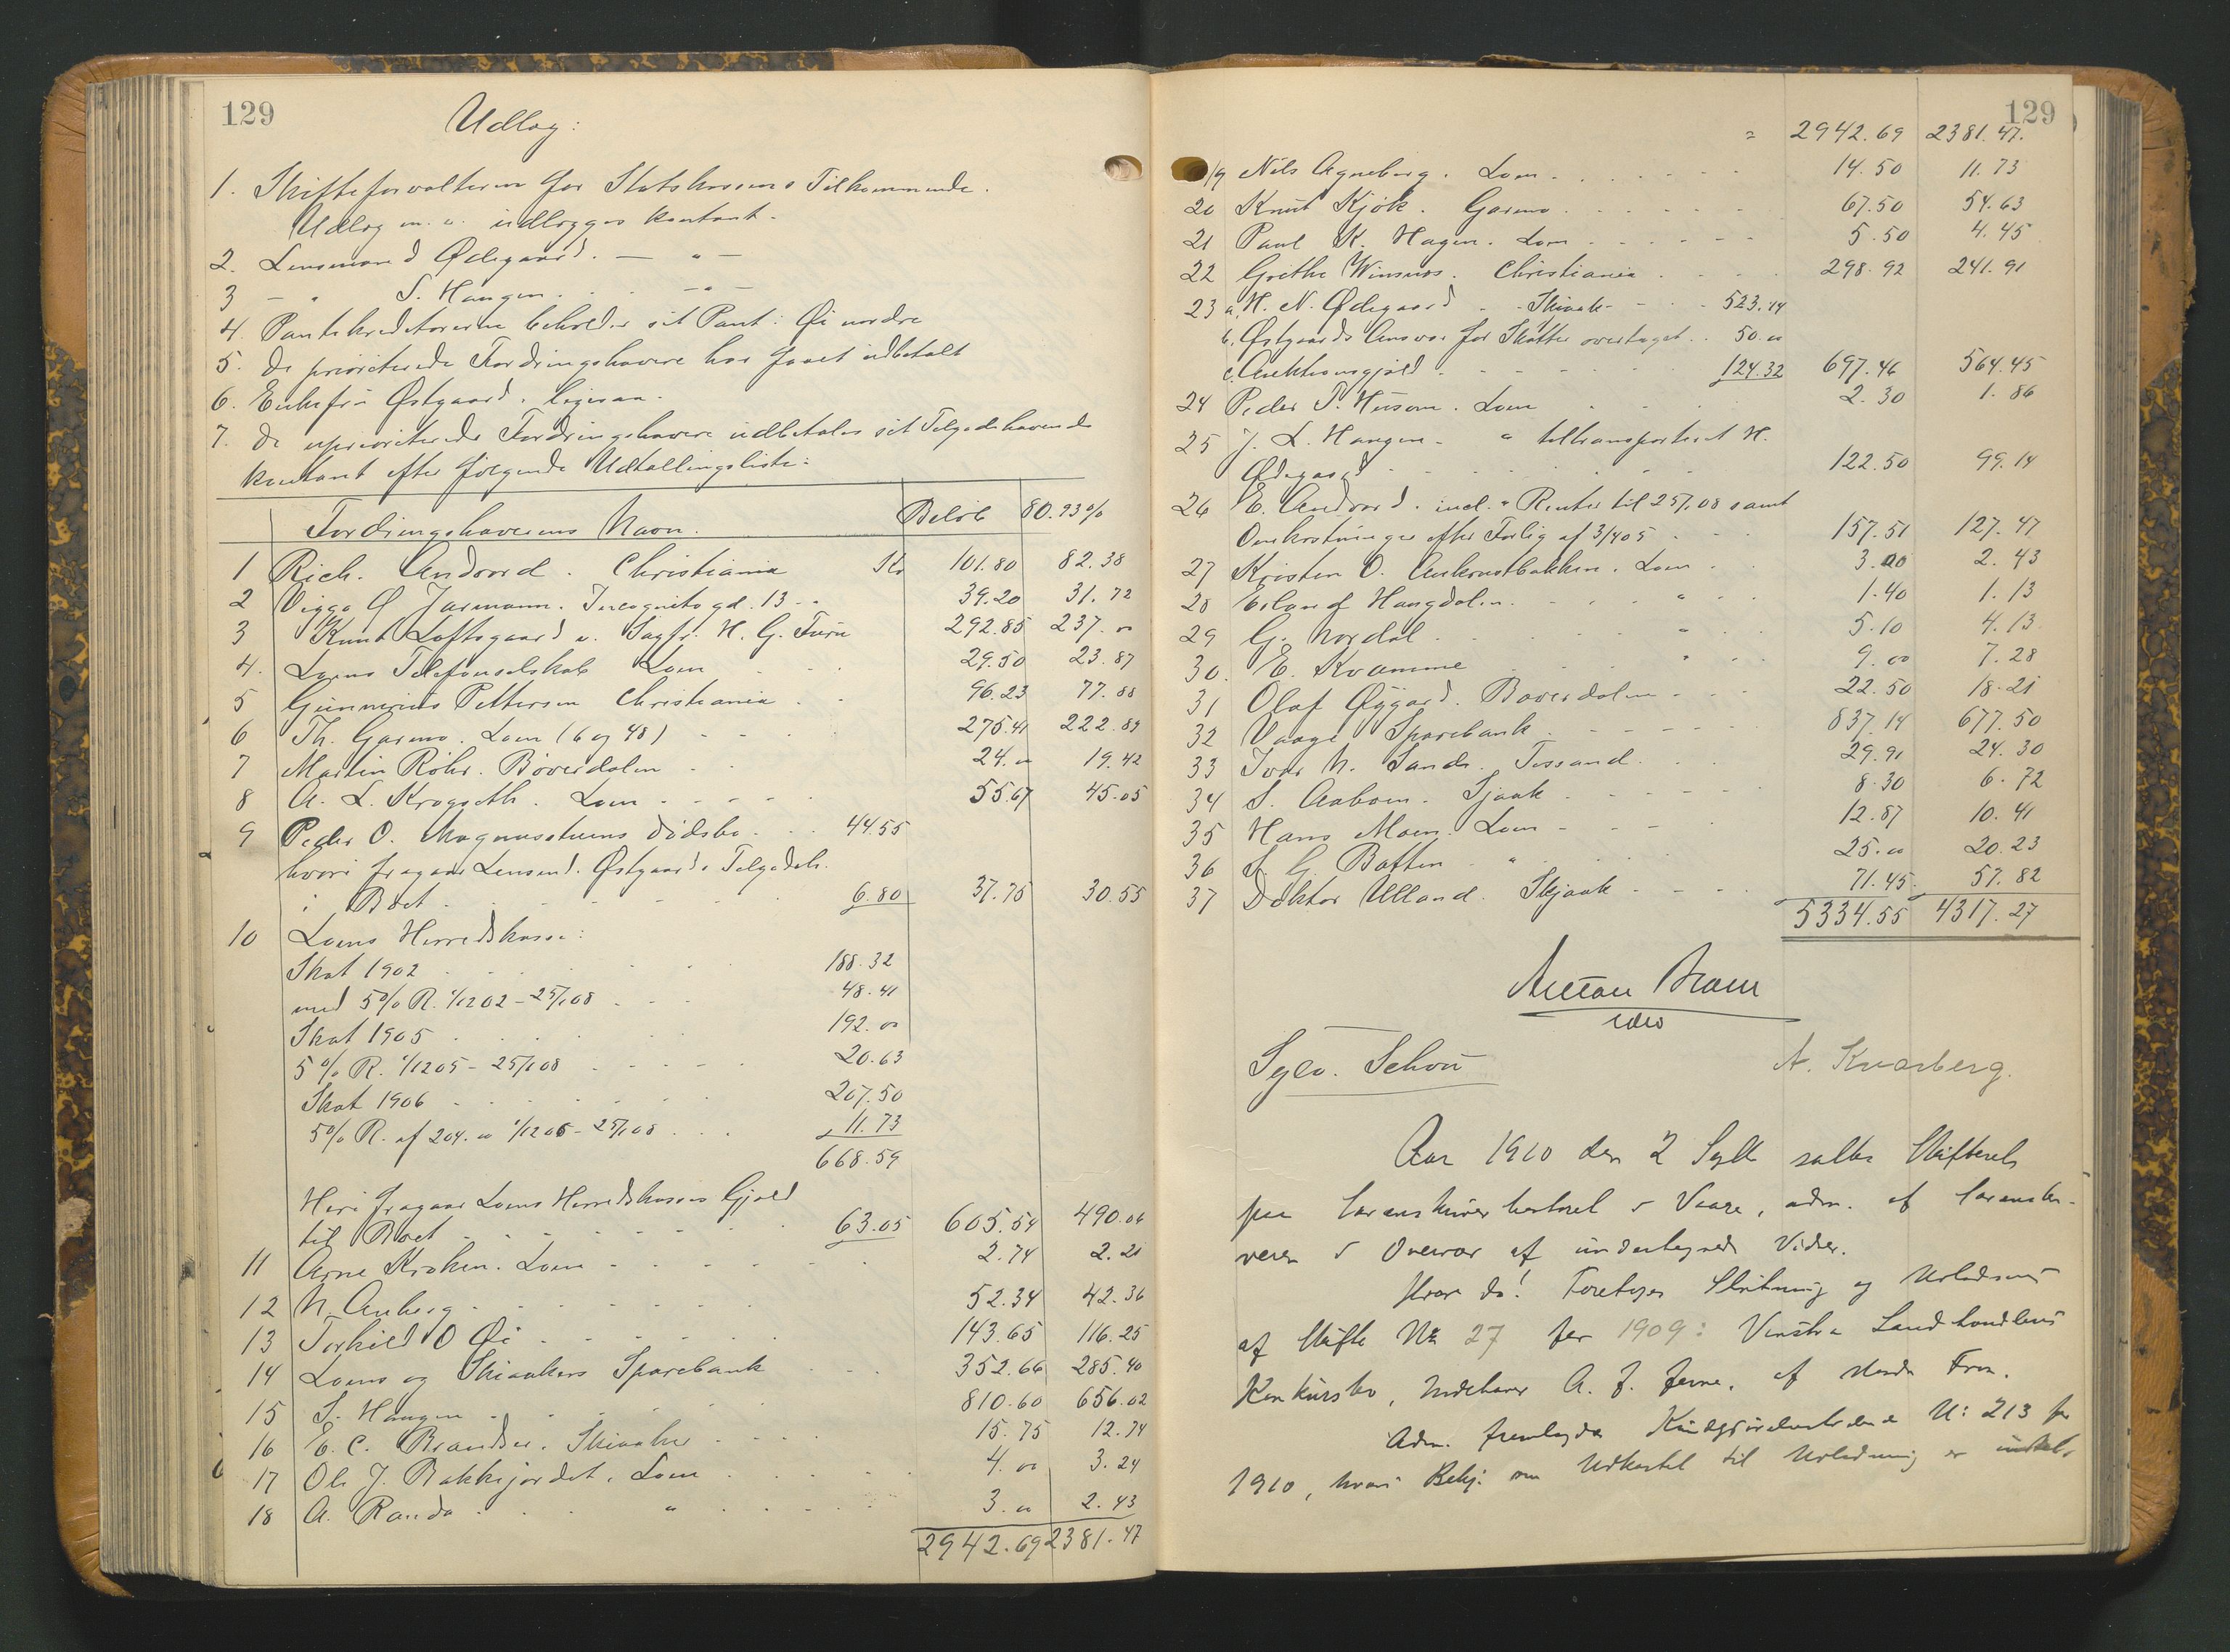 129
Udlæg:
1. Skifteforvalteren for Statskassens Tilkommende.
Udlæg m. v. udlægges kontant.
2. Lensmand Ødegaard. — " —
3 — " S. Haugen. — " —
4. Pantekreditorerne beholder sit Pant: Øi nordre
5. De prioriterede Fordringshavere har faaet udbetalt
6. Enkefru Østgaard. ligesaa.
7. De uprioriterede Fordringshavere udbetales sit Tilgodehavende
kontant efter følgende Udtællingsliste:
Fordringshaverens Navn. Beløb 80.93%
1 Rich. Andvord. Christiania Kr 101.80 82.38
2 Viggo Jarmann. Incognitogd. 13 - " 39.20 31.72
3 Knut Loftsgaard v. Sagf. H. G. Furu 292.85 237.00
4. Loms Telefonselskab Lom 29.50 23.87
5 Gunnerius Pettersen Christiania 96.23 77.88
6 Th. Garmo. Lom (6 og 48) 275.41 222.89
7 Martin Röhr. Bøverdalen 24.00 19.42
8 A. L. Krogseth. Lom 55.67 45.05
9 Peder O. Magnusstuens Dødsbo 44.55
hvori fragaar Lensmd. Østgaards Tilgodeh.
i Boet 6.80 37.75 30.55
10 Loms Herredskasse:
Skat 1902 188.32
med 5% R. 1/12 02 - 25/1 08 48.41
Skat 1905 192.00
5% R. 1/12 05 - 25/1 08 20.63
Skat 1906 207.50
5% R. af 204.00 1/12 06 - 25/1 08 11.73
668.59
Heri fragaar Loms Herredskasses Gjæld
til Boet 63.05 605.54 490.06
11 Arne Kroken. Lom 2.74 2.21
12 N. Anberg 52.34 42.36
13 Torkild O Øi 143.65 116.25
14 Loms og Skiaakers Sparebank 352.66 285.40
15 S. Haugen 810.60 656.02
16 E. C. Brandser. Skiaaker 15.75 12.74
17 Ole J. Bakkejordet. Lom 4.00 3.24
18 A. Randa " 3.00 2.43
2942.69 2381.47
129
= 2942.69 2381.47.
19 Nils Agneberg. Lom 14.50 11.73
20 Knut Kjøk. Garmo 67.50 54.63
21 Paul K. Hagen. Lom 5.50 4.45
22 Grethe Winsnes. Christiania 298.92 241.91
23 a, H. N. Ødegaard - Skiaak 523.14
b, Østgaards Ansvar for Skatter overtaget 50.00
c, Auktionsgjæld 124.32 697.46 564.45
24 Peder T. Husom. Lom 2.30 1.86
25 J. L. Haugen - " tiltransporteret H.
Ødegaard 122.50 99.14
26 E. Andvord. incl. Renter til 25/1 08 samt
Omkostninger efter Forlig af 3/4 05 157.51 127.47
27 Kristen O. Aukrustbakken. Lom 3.00 2.43
28 Erland Haugdalen " 1.40 1.13
29 G. Nordal " 5.10 4.13
30. E. Kvamme " 9.00 7.28
31 Olaf Øygard. Bøverdalen 22.50 18.21
32 Vaage Sparebank 837.14 677.50
33 Ivar N. Sande. Tessand 29.91 24.30
34 S. Aaboen. Sjaak 8.30 6.72
35 Hans Moen. Lom 12.87 10.41
36 S. G. Botten " 25.00 20.23
37 Doktor Ulland. Skjaak 71.45 57.82
5334.55 4317.27
Sylv. Schou A. Kvarberg.
Aar 1910 den 2 Juli sattes Skifteret
paa Sorenskriverkontoret i Vaage, adm. af Sorenskri-
veren i Overvær af undertegnede Vidner.
Hvor da! Foretoges Slutning og Udlodning
af Skifte No 27 for 1909: Vinstra Landhandleris
Konkursbo, Indehaver A. J. af Nordre Fron.
Adm. fremlagde Kundgjørelsestidende N: 213 for
1910, hvori Bekj. om Udkastet til Udlodning er